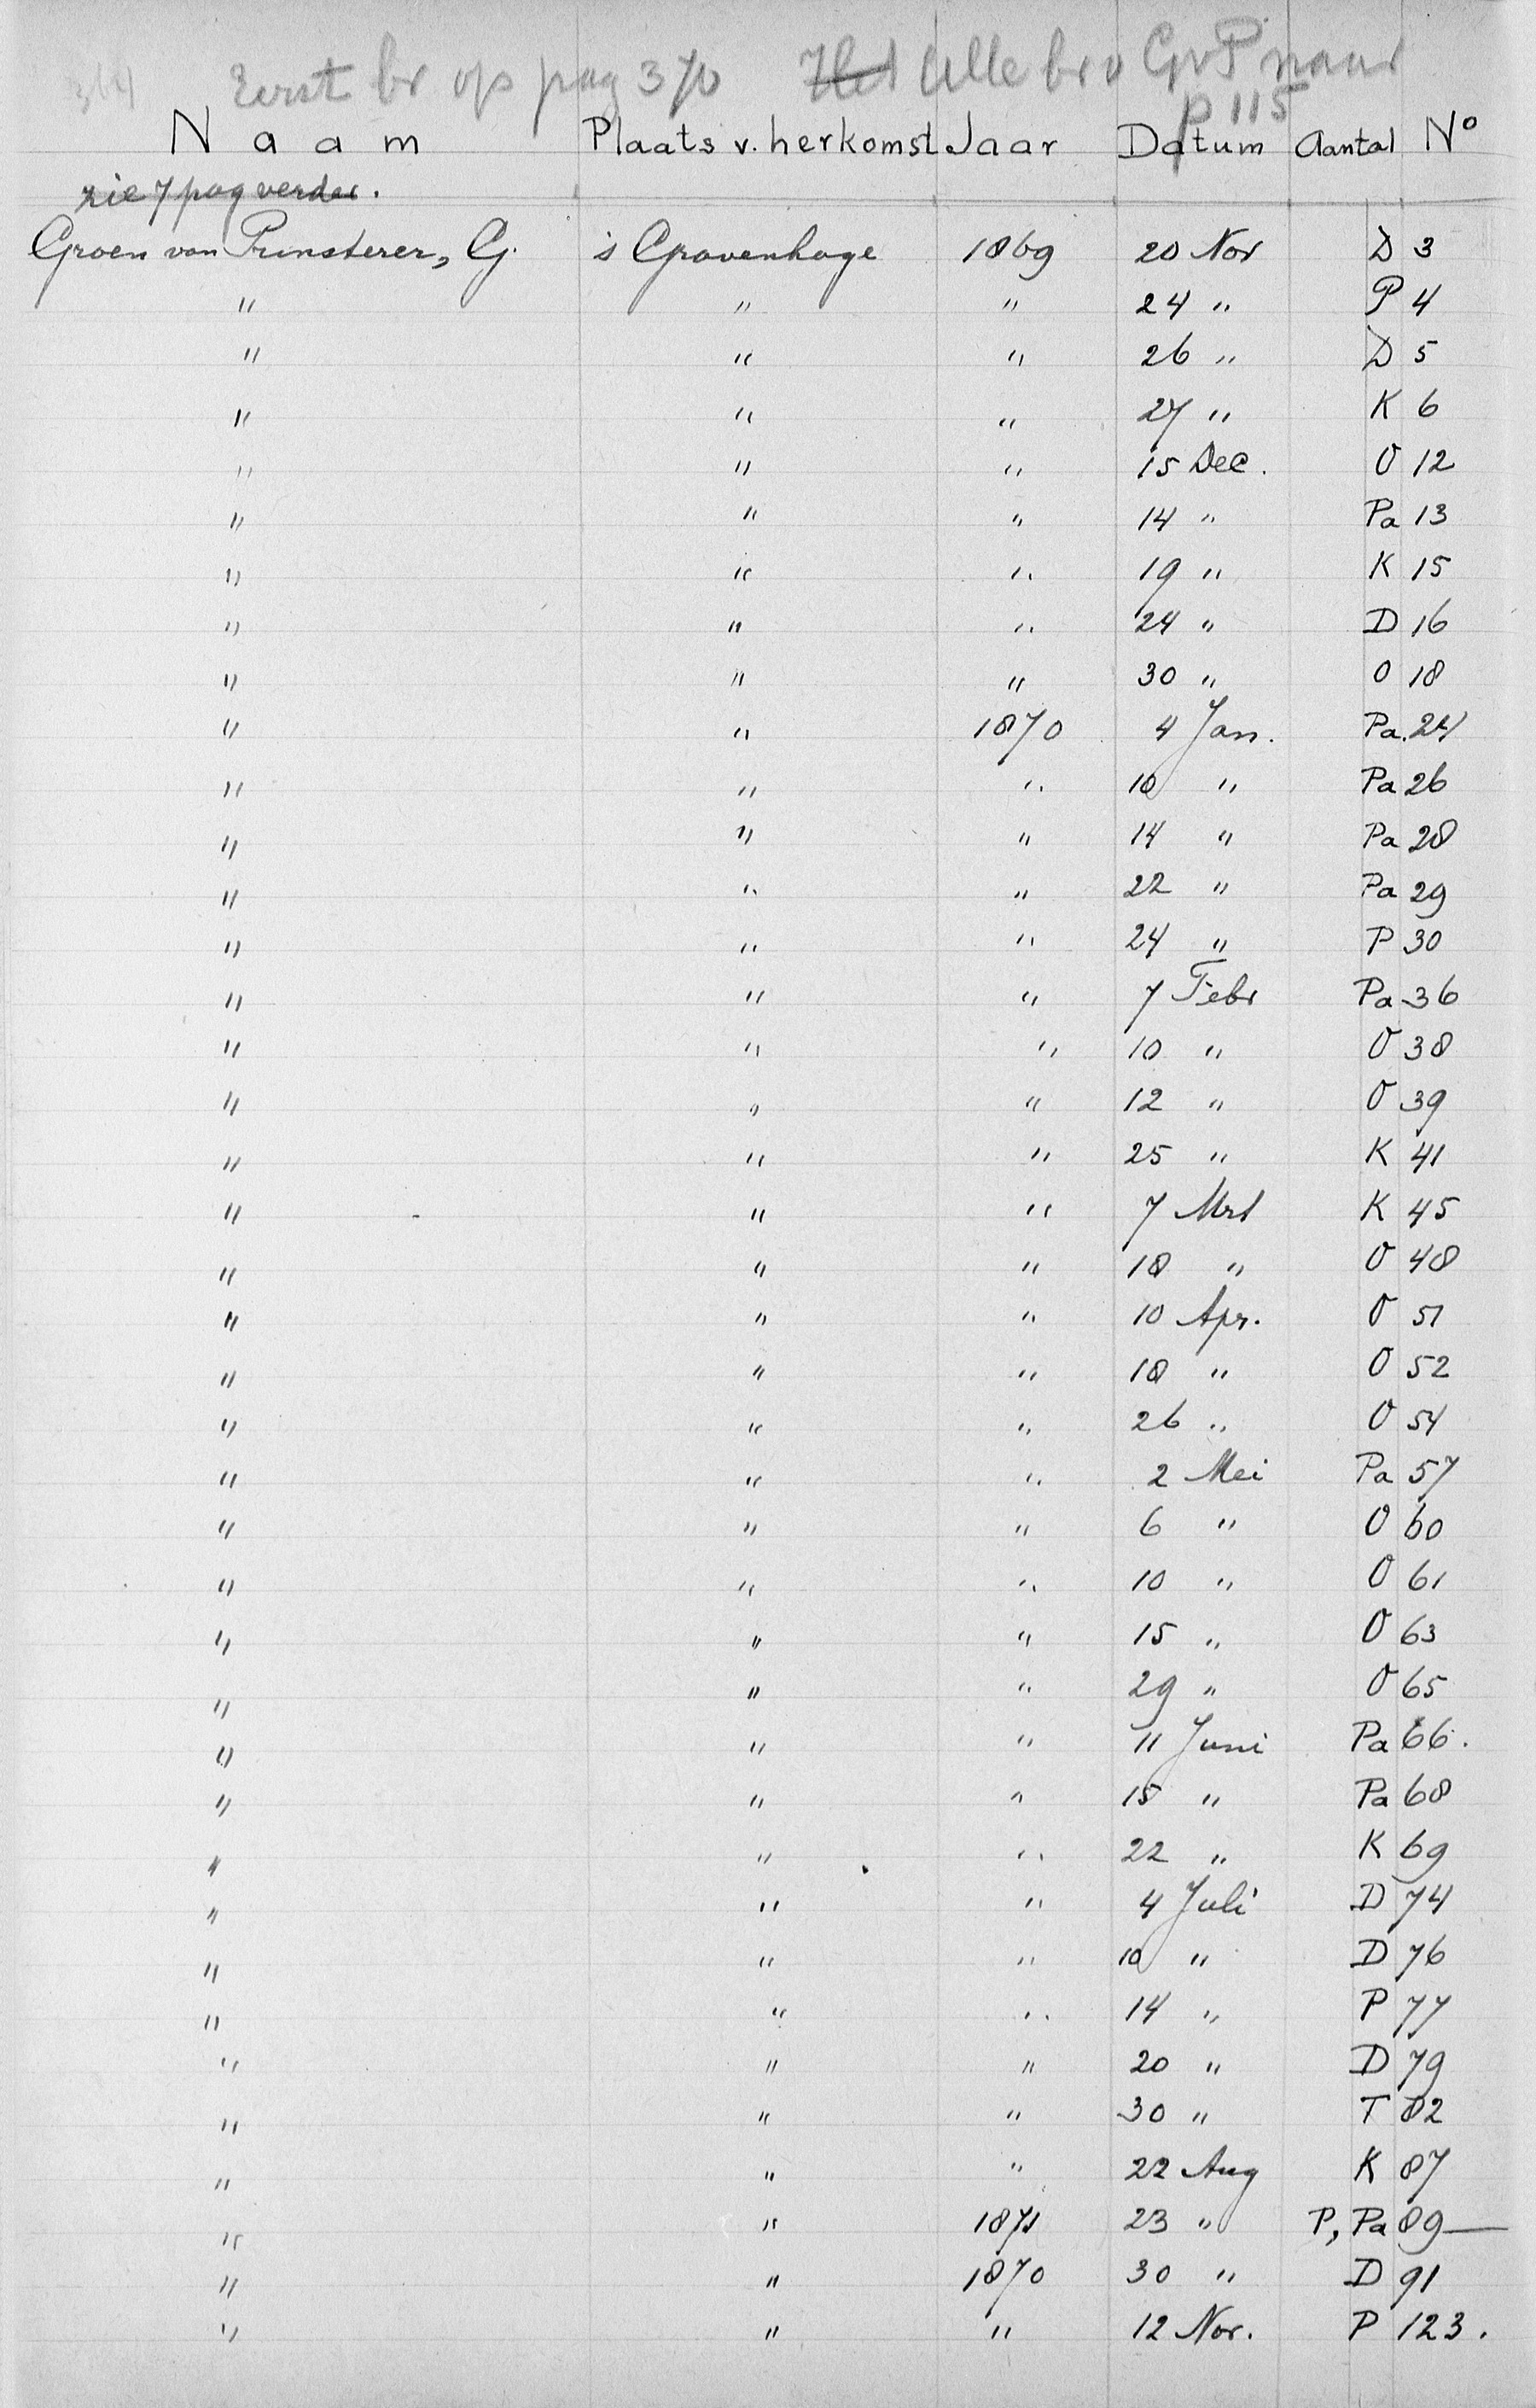 314 Eerst br op pag 370 Het Alle br v GvP naar
p 115
Naam Plaats v. herkomst Jaar Datum Aantal No
zie 7 pag verder.
Groen van Prinsterer, G. 's Gravenhage 1869 20 Nov D 3
" " " 24 " P 4
" " " 26 " D 5
" " " 27 " K 6
" " " 15 Dec. O 12
" " " 14 " Pa 13
" " " 19 " K 15
" " " 24 " D 16
" " " 30 " O 18
" " 1870 4 Jan. Pa. 24
" " " 10 " Pa 26
" " " 14 " Pa 28
" " " 22 " Pa 29
" " " 24 " P 30
" " " 7 Febr Pa 36
" " " 10 " O 38
" " " 12 " O 39
" " " 25 " K 41
" " " 7 Mrt K 45
" " " 18 " O 48
" " " 10 Apr. O 51
" " " 18 " O 52
" " " 26 " O 54
" " " 2 Mei Pa 57
" " " 6 " O 60
" " " 10 " O 61
" " " 15 " O 63
" " " 29 " O 65
" " " 11 Juni Pa 66.
" " " 15 " Pa 68
" " " 22 " K 69
" " " 4 Juli D 74
" " " 10 " D 76
" " " 14 " P 77
" " " 20 " D 79
" " " 30 " T 82
" " " 22 Aug K 87
" " 1871 23 " P, Pa 89—
" " 1870 30 " D 91
" " " 12 Nov. P 123.